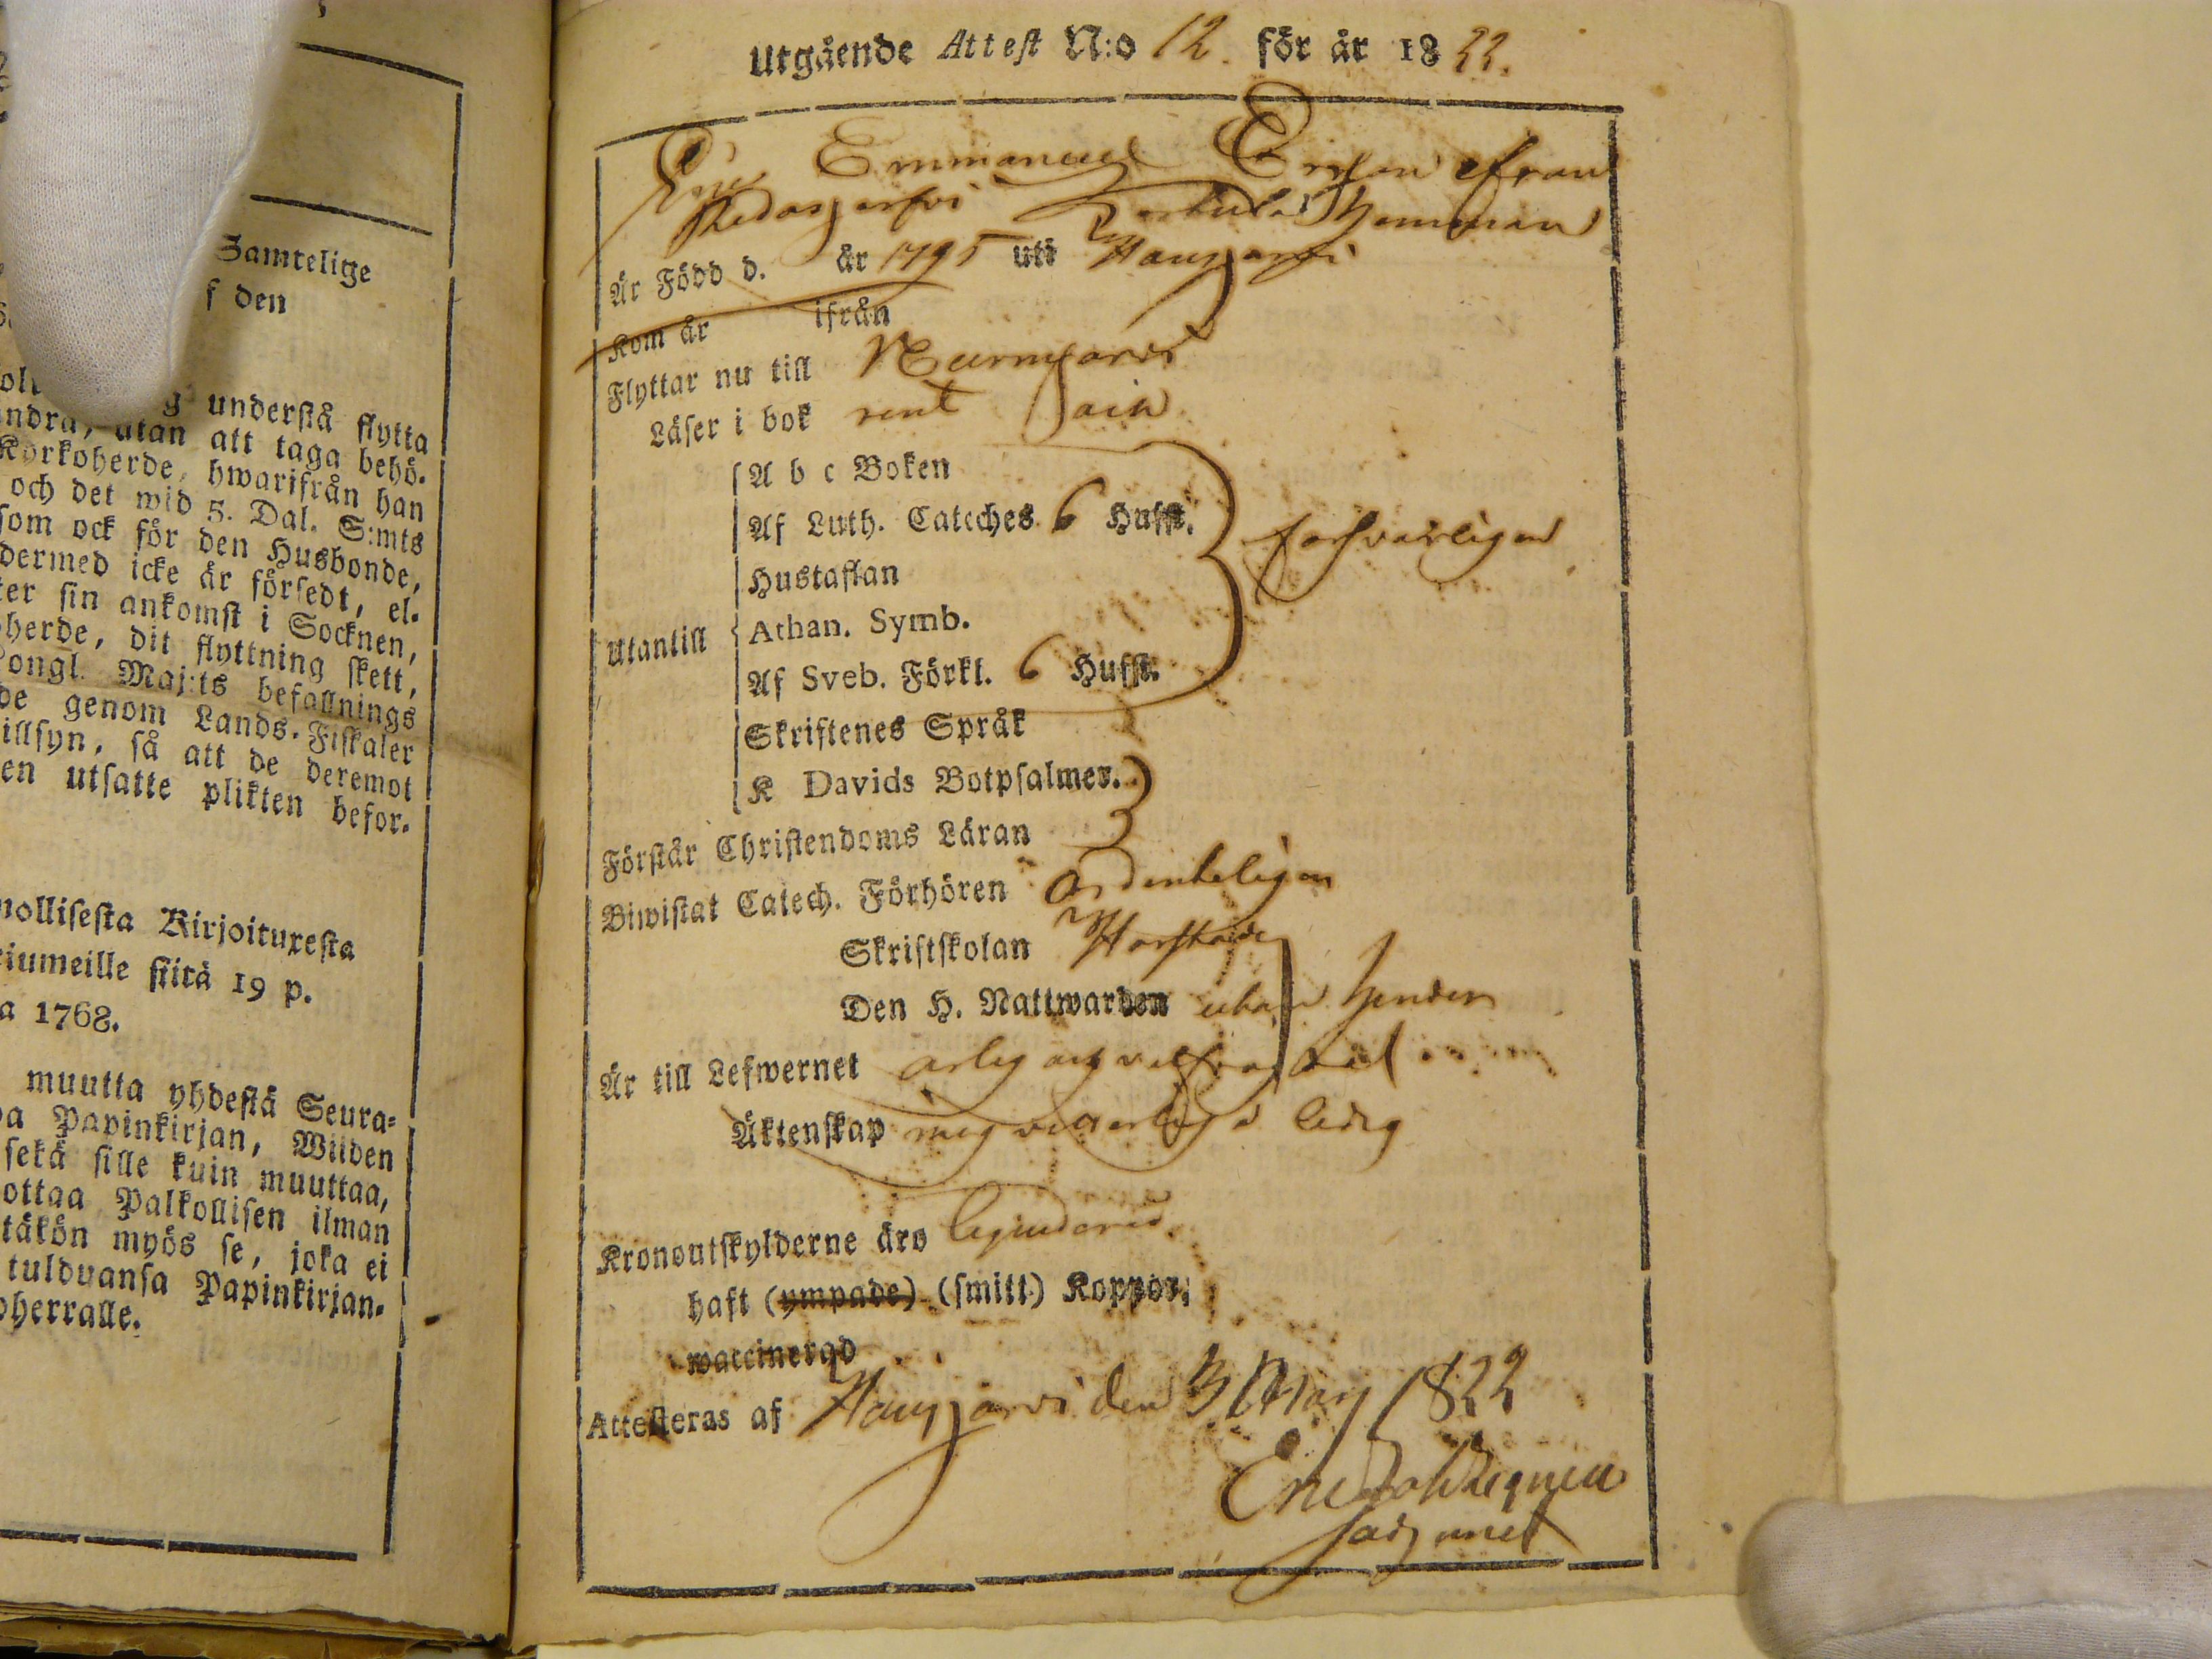 Samtelige
f den
understå flytta
utan att taga behö-
Kyrkoherde, hwarifrån han
och det wid 5. Dal. S:mts
som ock för den Husbonde,
dermed icke är försedt, el-
ter sin ankomst i Socknen,
herde, dit flyttning skett,
ongl. Maj:ts befallnings
de genom Lands-Fiskaler
illsyn, så att de deremot
en utsatte plikten befor-
nollisesta Kirjoituxesta
riumeille siitä 19 p.
a 1768.
muutta yhdestä Seura-
pa Papinkirjan, Wiiden
sekä sille kuin muuttaa,
ottaa Palkollisen ilman
täkön myös se, joka ei
tulduansa Papinkirjan-
oherralle.
Utgående Attest N:o 12. för år 1822.
Emmanuel Ersson ifrån
Hemman
Är Född d. år 1795 uti Hausjarfvi
Kom år ifrån
Flyttar nu till Nurmjarvi
Läser i bok rent
A b c Boken
Af Luth. Cateches 6 Hufst.
Hustaflan
försvarligen
Athan. Symb.
Utantill
Af Sveb. Förkl. 6 Hufst.
Skriftenes Språk
K Davids Botpsalmer.
Förstår Christendoms Läran
Biwistat Catech. Förhören Ordenteligen
Skriftskolan
Den H. Nattwarden utan hinder
Är till Lefwernet ärlig och
Äktenskap mig veterligt ledig
Kronoutskylderne äro
haft (ympade) (smitt.) Koppor,
waccinerad
Attesteras af Hausjärvi den 3 Maij 1822